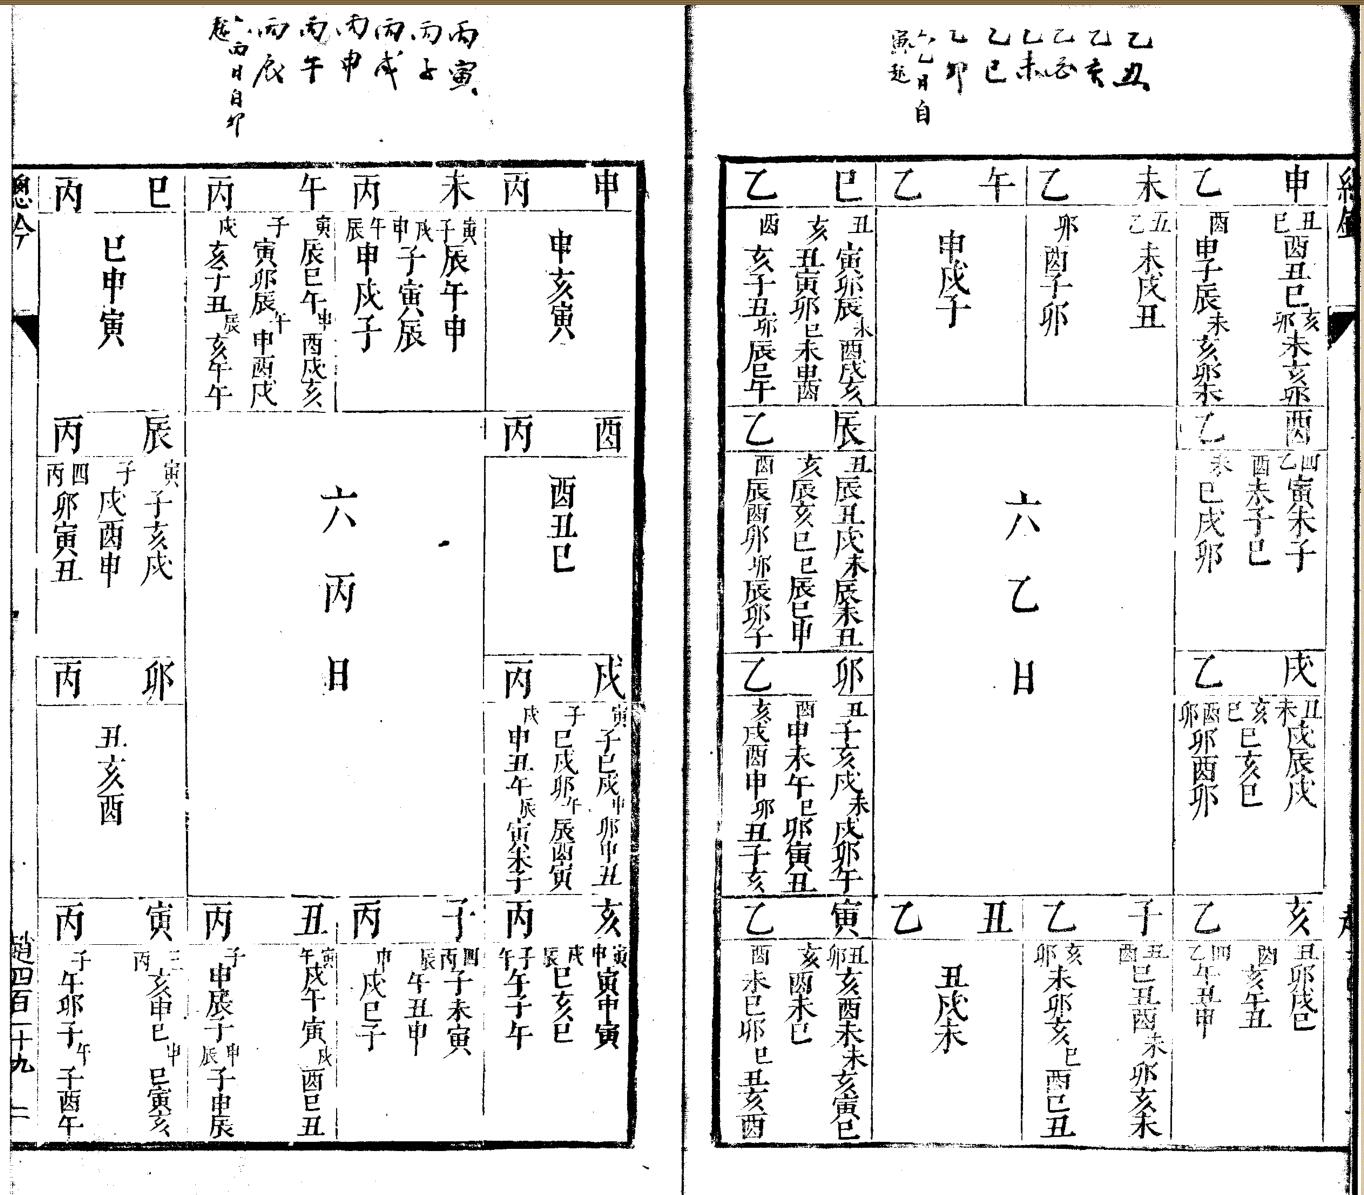 乙丑
乙亥
乙酉
乙未
乙巳
乙卯
六乙日自
寅起
丙寅
丙子
丙戌
丙申
丙午
丙辰
六丙日自卯
起
申 乙
丑 巳
酉丑巳
亥 卯
未亥卯
酉
申子辰
未
亥卯未
未 乙
五乙
未戌丑
卯
酉子卯
午 乙
申戌子
巳 乙
丑
寅卯辰
未
酉戌亥
亥
丑寅卯
巳
未申酉
酉
亥子丑
卯
辰巳午
酉 乙
四乙
寅未子
酉
未子巳
未
巳戌卯
辰 乙
丑
辰丑戌
未
辰未丑
亥
辰亥巳
巳
辰巳申
酉
辰酉卯
卯
辰卯子
六乙日
戌 乙
丑 未
戌辰戌
亥 巳
巳亥巳
酉 卯
卯酉卯
卯 乙
丑
子亥戌
未
戌卯午
酉
申未午
巳
卯寅丑
亥
戌酉申
卯
丑子亥
亥 乙
丑
卯戌巳
酉
亥午丑
四乙
午丑申
子 乙
丑 酉
巳丑酉
未
卯亥未
亥 卯
未卯亥
巳
酉巳丑
丑 乙
丑戌未
寅 乙
丑 卯
亥酉未
未
亥寅巳
亥
酉未巳
酉
未巳卯
巳
丑亥酉
申 丙
申亥寅
未 丙
寅 子
辰午申
戌 申
子寅辰
午 辰
申戌子
午 丙
寅
辰巳午
申
酉戌亥
子
寅卯辰
午
申酉戌
戌
亥子丑
辰
亥午午
巳 丙
巳申寅
酉 丙
酉丑巳
辰 丙
寅
子亥戌
子
戌酉申
四丙
卯寅丑
六丙日
戌 丙
寅
子巳戌
申
卯申丑
子
巳戌卯
午
辰酉寅
戌
申丑午
辰
寅未子
卯 丙
丑亥酉
亥 丙
寅 申
寅申寅
戌 辰
巳亥巳
子 午
午子午
子 丙
四丙
子未寅
辰
午丑申
申
戌巳子
丑 丙
寅 午
戌午寅
戌
酉巳丑
子
申辰子
申 辰
子申辰
寅 丙
三丙
亥申巳
申
巳寅亥
子
午卯子
午
子酉午
四百二十九
二